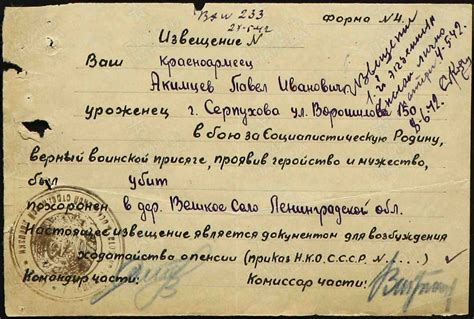 вх N 233
27-5-42
Форма №4.
Извещение N
Ваш красноармеец
Акимцев Павел Иванович
уроженец г. Серпухова ул. Ворошилова 150
в бою за Социалистическую Родину,
верный воинской присяге, проявив геройство и мужество,
был убит
похоронен в дер. Великое Село Ленинградской обл.
Настоящее извещение является документом для возбуждения
ходатайства о пенсии (приказ Н.К.О.С.С.С.Р. N.....)
Командир части:
Комиссар части:
Извещения
1-й экземпляр
лично
4-5-42.
8-6-42.